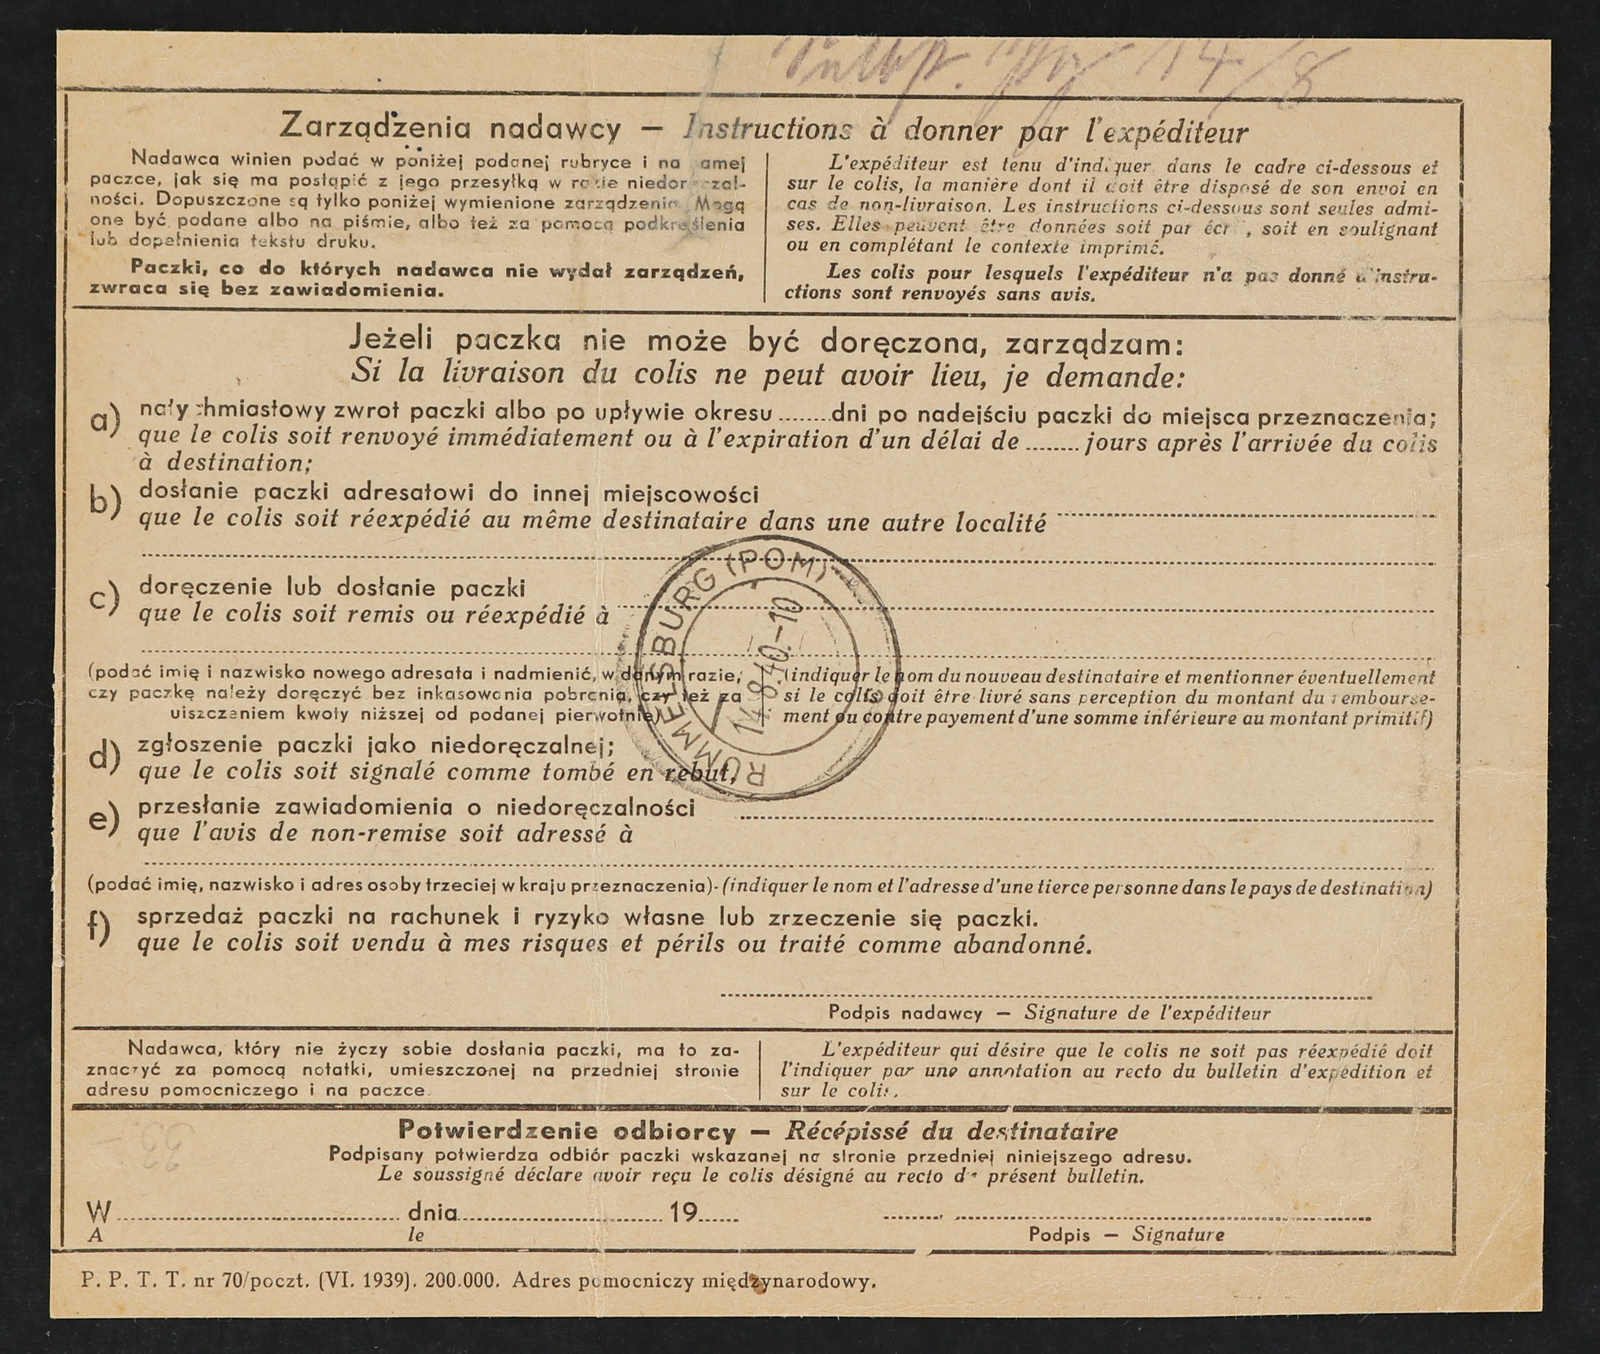 14/8
Zarządzenia nadawcy — Instructions à donner par l'expéditeur
Nadawca winien podać w poniżej podanej rubryce i na samej
paczce, jak się ma postąpić z jego przesyłką w razie niedoręczal-
ności. Dopuszczone są tylko poniżej wymienione zarządzenia. Mogą
one być podane albo na piśmie, albo też za pomocą podkreślenia
lub dopełnienia tekstu druku.
Paczki, co do których nadawca nie wydał zarządzeń,
zwraca się bez zawiadomienia.
L'expéditeur est tenu d'indiquer dans le cadre ci-dessous et
sur le colis, la manière dont il doit être disposé de son envoi en
cas de non-livraison. Les instructions ci-dessous sont seules admi-
ses. Elles peuvent être données soit par écrit, soit en soulignant
ou en complétant le contexte imprimé.
Les colis pour lesquels l'expéditeur n'a pas donné d'instru-
ctions sont renvoyés sans avis.
Jeżeli paczka nie może być doręczona, zarządzam:
Si la livraison du colis ne peut avoir lieu, je demande:
a) natychmiastowy zwrot paczki albo po upływie okresu ........ dni po nadejściu paczki do miejsca przeznaczenia;
que le colis soit renvoyé immédiatement ou à l'expiration d'un délai de ........ jours après l'arrivée du colis
à destination;
b) dosłanie paczki adresatowi do innej miejscowości
que le colis soit réexpédié au même destinataire dans une autre localité
c) doręczenie lub dosłanie paczki
que le colis soit remis ou réexpédié à
(podać imię i nazwisko nowego adresata i nadmienić, w danym razie,
czy paczkę należy doręczyć bez inkasowania pobrania, czy też za
uiszczeniem kwoty niższej od podanej pierwotnie)
(indiquer le nom du nouveau destinataire et mentionner éventuellement
si le colis doit être livré sans perception du montant du rembourse-
ment ou contre payement d'une somme inférieure au montant primitif)
RUMMELSBURG (POM)
14.8.40.-10
d) zgłoszenie paczki jako niedoręczalnej;
que le colis soit signalé comme tombé en rebut;
e) przesłanie zawiadomienia o niedoręczalności
que l'avis de non-remise soit adressé à
(podać imię, nazwisko i adres osoby trzeciej w kraju przeznaczenia)-(indiquer le nom et l'adresse d'une tierce personne dans le pays de destination)
f) sprzedaż paczki na rachunek i ryzyko własne lub zrzeczenie się paczki.
que le colis soit vendu à mes risques et périls ou traité comme abandonné.
Podpis nadawcy — Signature de l'expéditeur
Nadawca, który nie życzy sobie dosłania paczki, ma to za-
znaczyć za pomocą notatki, umieszczonej na przedniej stronie
adresu pomocniczego i na paczce.
L'expéditeur qui désire que le colis ne soit pas réexpédié doit
l'indiquer par une annotation au recto du bulletin d'expédition et
sur le colis.
Potwierdzenie odbiorcy — Récépissé du destinataire
Podpisany potwierdza odbiór paczki wskazanej na stronie przedniej niniejszego adresu.
Le soussigné déclare avoir reçu le colis désigné au recto du présent bulletin.
W ........ dnia ........ 19......
A le
Podpis — Signature
P. P. T. T. nr 70/poczt. (VI. 1939). 200.000. Adres pomocniczy międzynarodowy.